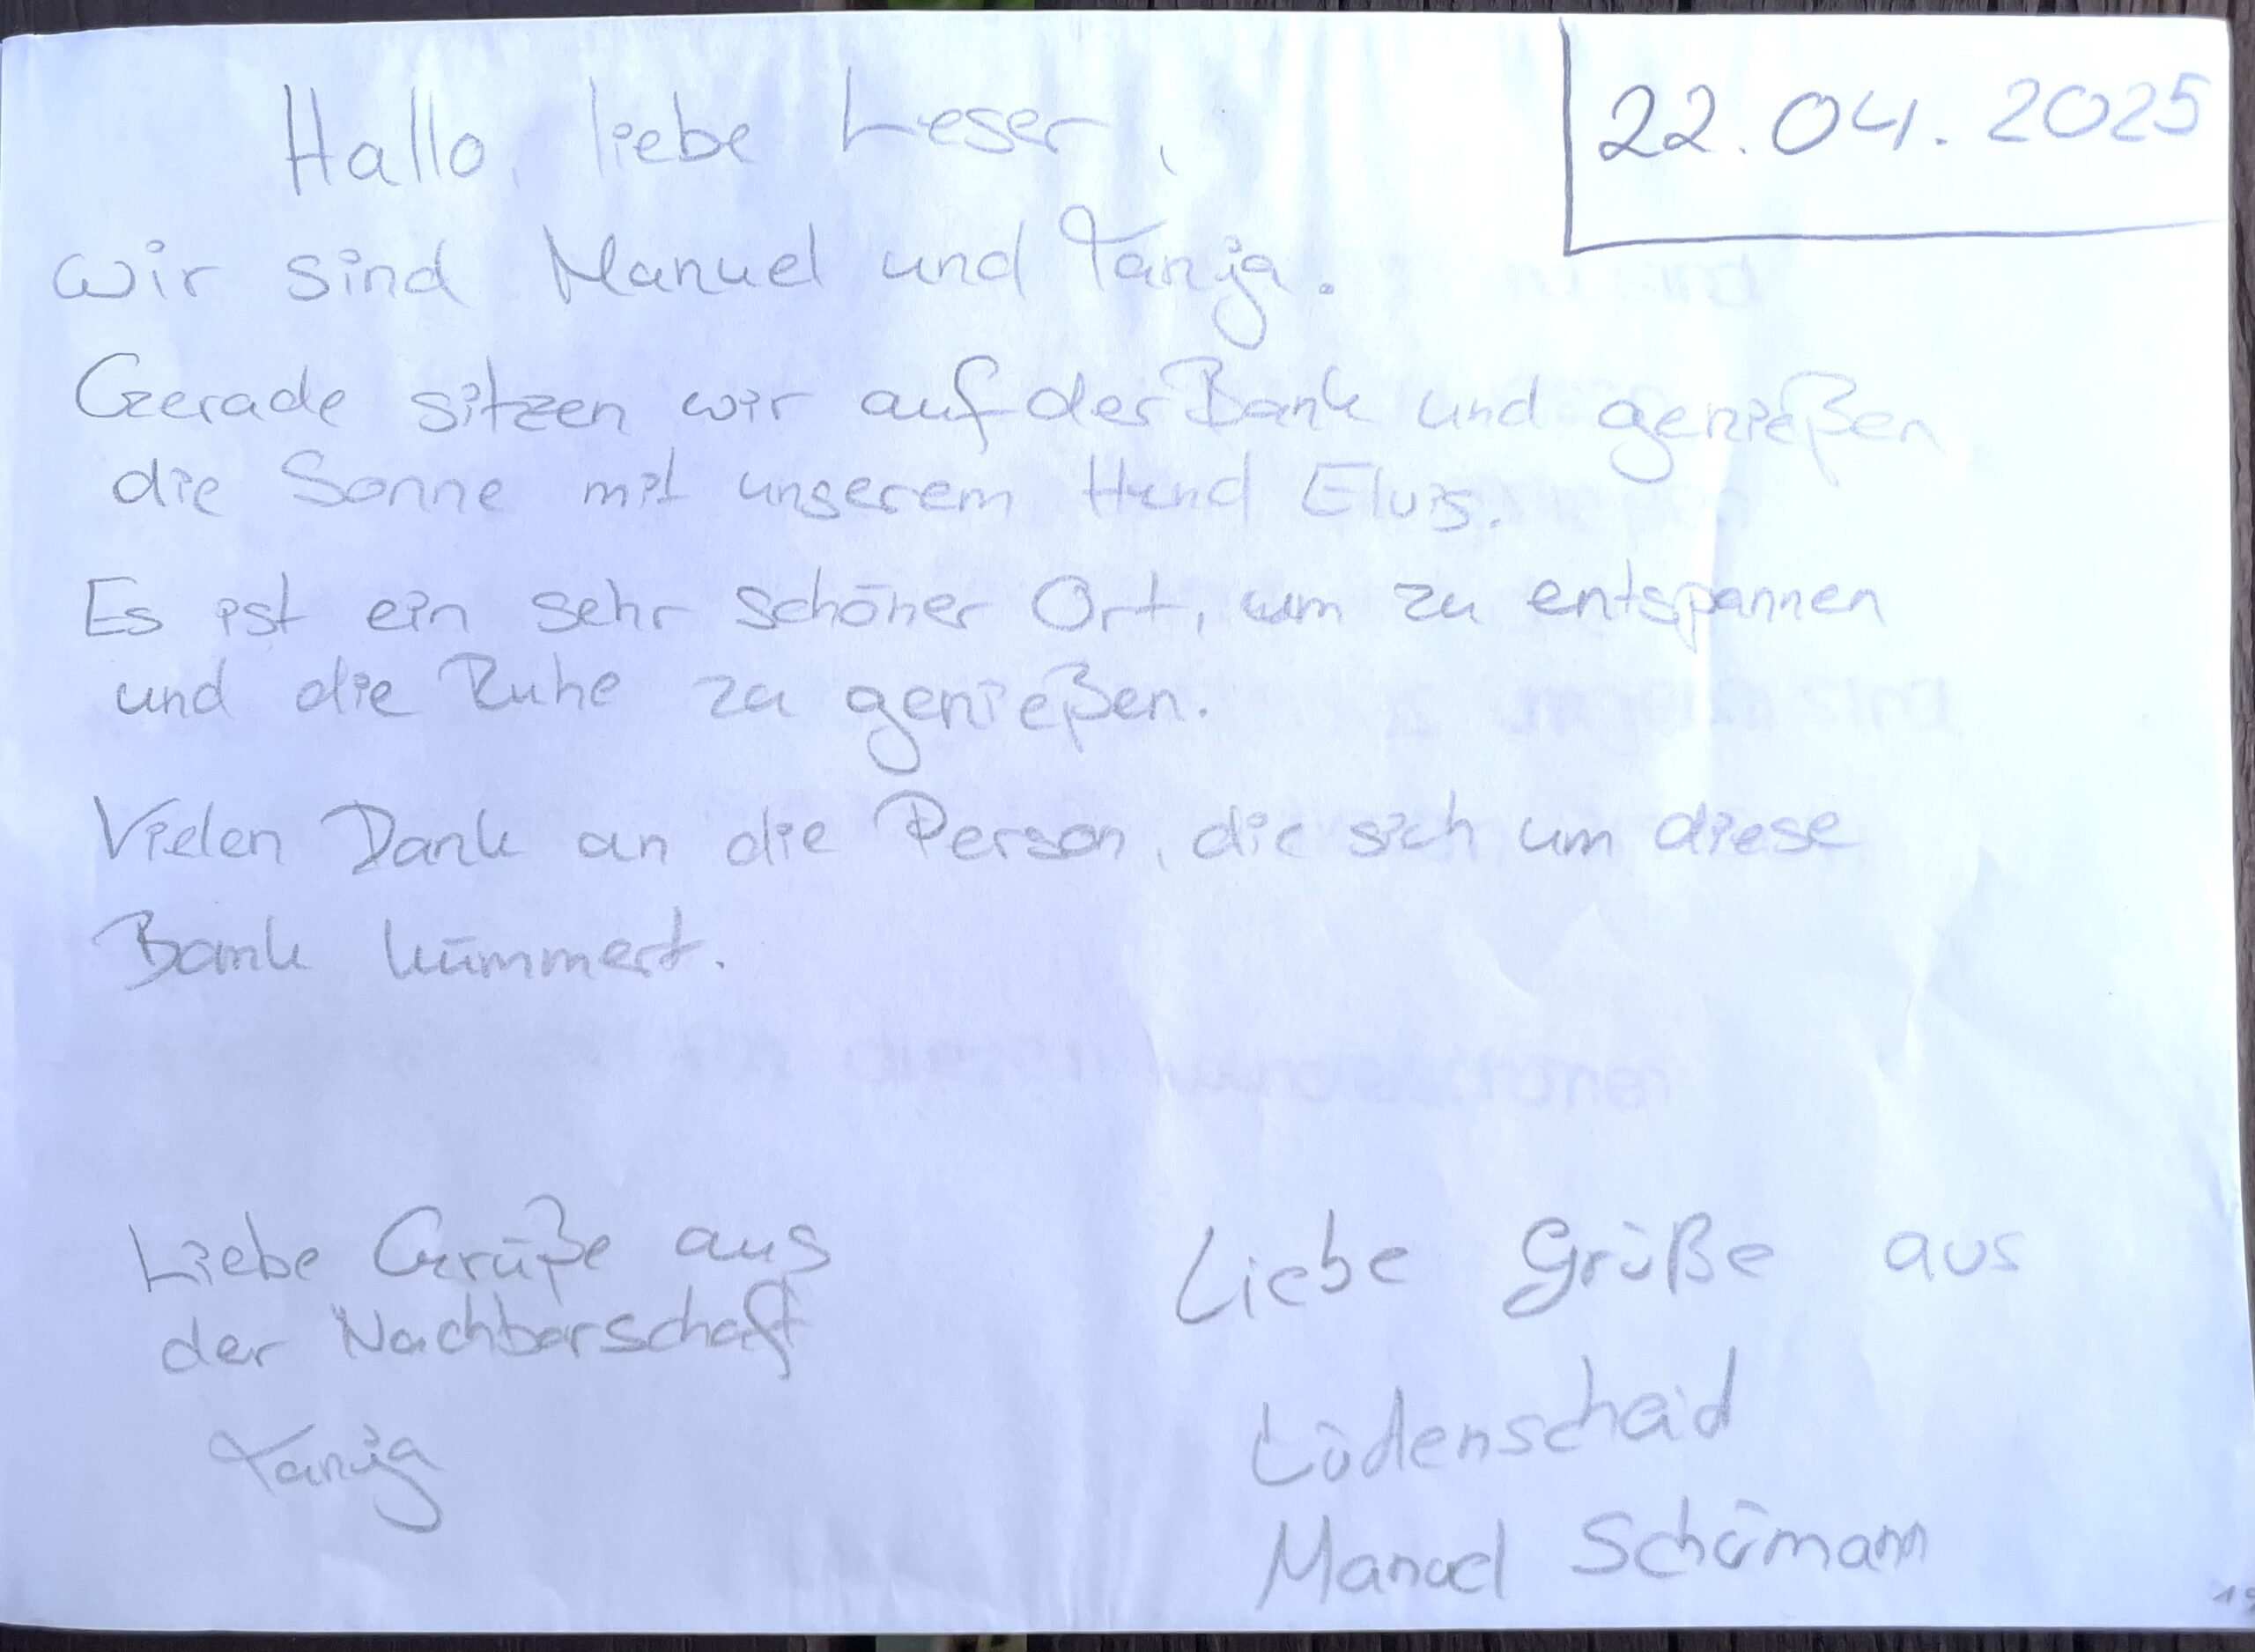 22.04.2025
Hallo, liebe Leser,
wir sind Manuel und Tanja.
Gerade sitzen wir auf der Bank und genießen
die Sonne mit unserem Hund Elvis.
Es ist ein sehr schöner Ort, um zu entspannen
und die Ruhe zu genießen.
Vielen Dank an die Person, die sich um diese
Bank kümmert.
Liebe Grüße aus
der Nachbarschaft
Tanja
Liebe Grüße aus
Lüdenscheid
Manuel Schümann